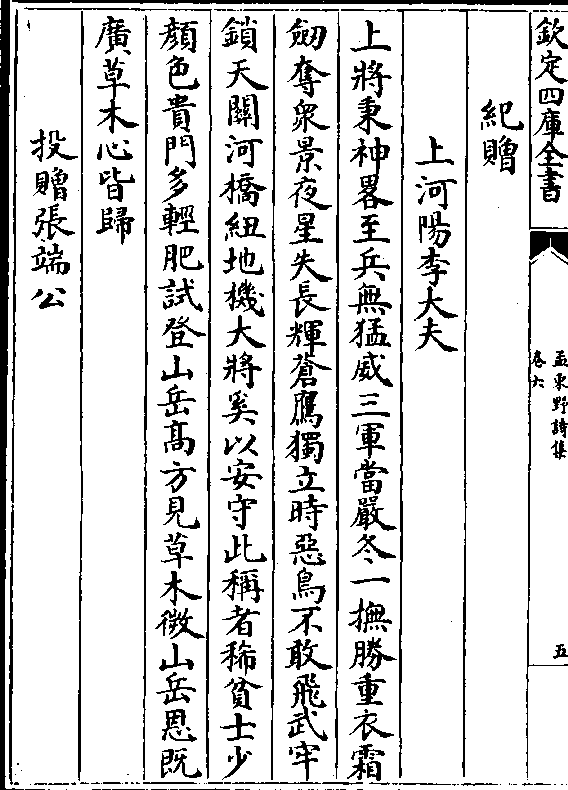 欽定四庫全書
孟東野詩集
卷六
五
紀贈
上河陽李大夫
上將秉神畧至兵無猛威三軍當嚴冬一撫勝重衣霜
劒奪衆景夜星失長輝蒼鷹獨立時惡鳥不敢飛武牢
鎖天關河橋紐地機大將奚以安守此稱者稀貧士少
顔色貴門多輕肥試登山岳髙方見草木微山岳恩既
廣草木心皆歸
投贈張端公